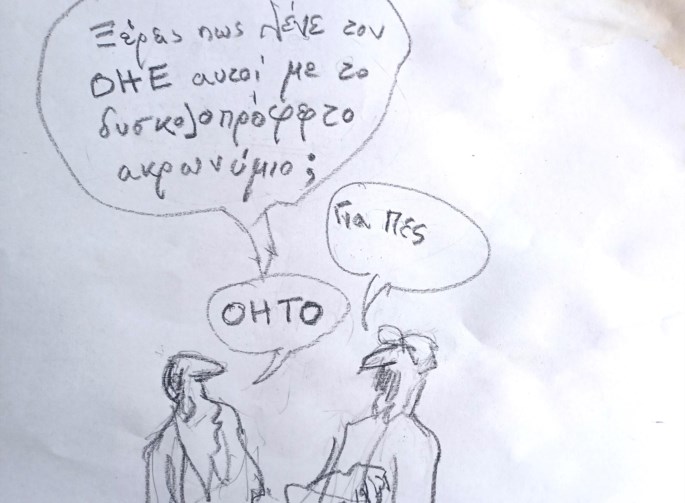 Ξέρεις πως λένε τον
ΟΗΕ αυτοί με το
δυσκολοπρόφερτο
ακρωνύμιο;
Για πές
ΟΗΤΟ